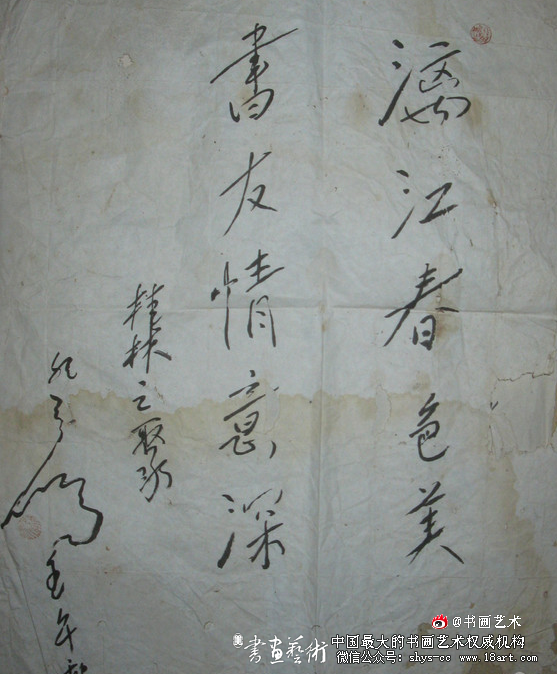 漓江春色美
书友情意深
桂林之聚
年
@书画艺术
書画藝術
中国最大的书画艺术权威机构
微信公众号：shys-cc www.18art.com